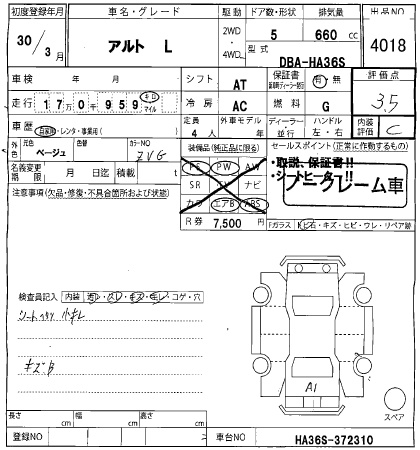 初度登録年月 車名・グレード 駆動 ドア数・形状 排気量 出品NO
30 / 3月 アルト L 2WD ・ 4WD 5 660 cc 4018
型式 DBA-HA36S
車検 年 月 シフト AT 保証書 有・無 評価点
走行 17万0千959 キロ マイル 冷房 AC 燃料 G 3.5
車歴 自家用・レンタ・事業用( ) 定員 4人 外車モデル 年 ディーラー・並行 ハンドル 左・右 内装評価 C
外色 元色 ベージュ 色替 カラーNO ZVG
装備品(純正品に限る) セールスポイント(正常に作動するもの)
名義変更期限 月 日迄 積載 t
PS PW AW
SR 革 ナビ
カラ エアB ABS
・取説、保証書!!
・シートヒーター!!
ノークレーム車
注意事項(欠品・修復・不具合箇所および状態)
R券 7,500円
Fガラス 石・キズ・ヒビ・ワレ・リペア跡
検査員記入 内装 汚レ・スレ・キズ・キレ・コゲ・穴
キズB
A1
スペア
長さ cm 幅 cm 高さ cm
登録NO 車台NO HA36S-372310